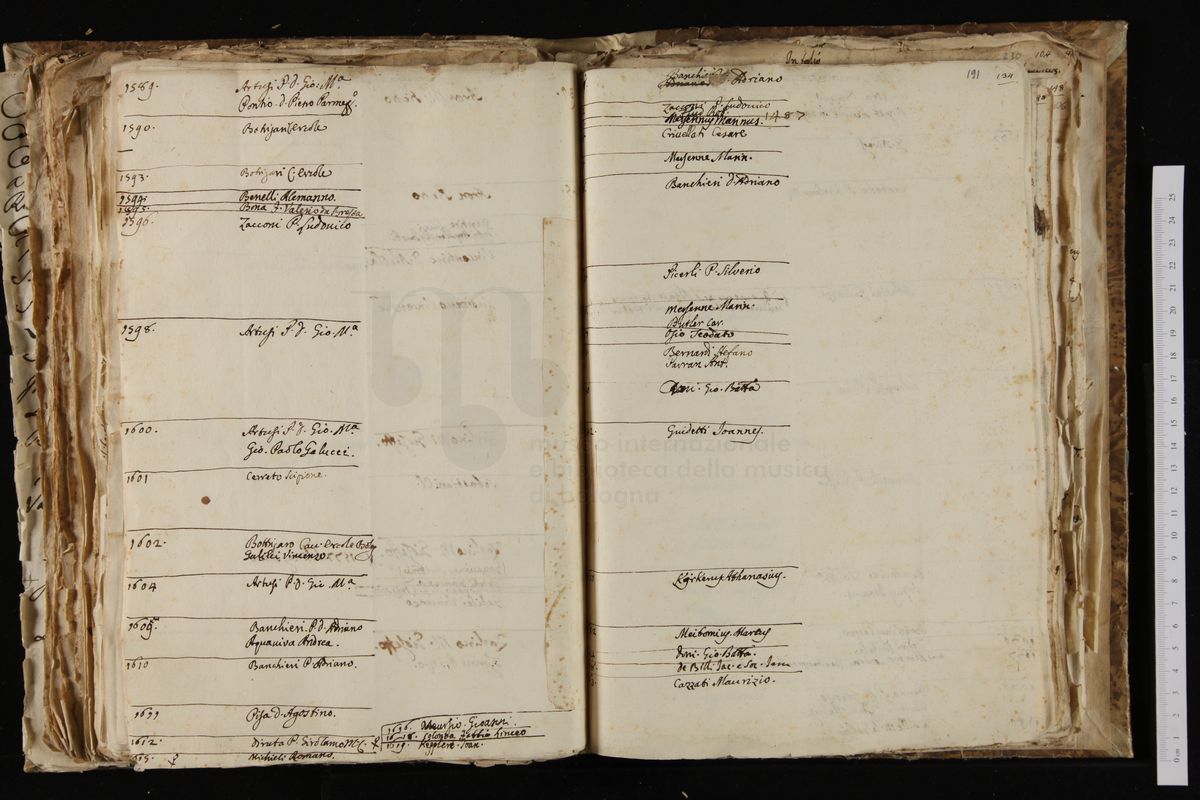 1589. Artusi P. D. Gio: Ma.
Pontio. D. Pietro Parmeg.o
1590. Bottrigari Ercole
1593. Bottrigari C. Ercole
1594. Benelli Alemanno.
1595. Bona F. Valerio da Brescia
1596. Zacconi P. Ludovico
1598. Artusi P. D. Gio. Ma.
1600. Artusi P. D. Gio. Ma.
Gio. Paolo Galucci.
1601 Cerreto Scipione.
1602. Bottrigaro Cav. Ercole
Galilei Vincenzo.
1604 Artusi P. D. Gio. Ma.
1609. Banchieri. P. D. Adriano
Aquaviva Andrea.
1610 Banchieri P. Adriano.
1611 Pisa D. Agostino.
1612. Diruta P. Girolamo M. C.
1615. Michieli Romano.
1616. Giovanni.
1618. Colonna Fabbio Linceo
1619. Kepplere. Joan.
In folio
191 134
Banchieri D. Adriano
Zacconi P. Ludovico
Mersennus Marinus.
Crivellati Cesare
Mersenne Marin.
Banchieri D. Adriano
Picerli P. Silverio
Mersenne Marin.
Butler Car.
Osio Teodato
Bernardi Stefano
Parran Ant.
Doni. Gio. Batta
Guidetti Joannes.
Kirkerus Athanasius.
Meibomius. Marcus
Doni. Gio. Batta.
de Billi Jac.
Cazzati Maurizio.
museo internazionale
e biblioteca della musica
di bologna